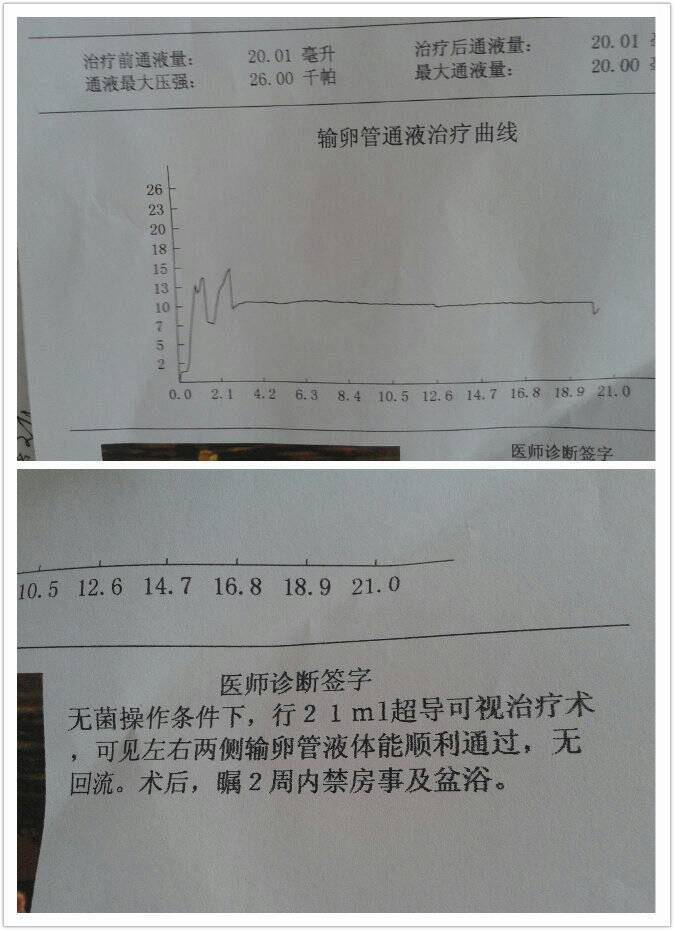 治疗前通液量： 20.01 毫升 治疗后通液量： 20.01
通液最大压强： 26.00 千帕 最大通液量： 20.00
输卵管通液治疗曲线
26
23
20
18
15
13
10
7
5
2
0.0 2.1 4.2 6.3 8.4 10.5 12.6 14.7 16.8 18.9 21.0
医师诊断签字
10.5 12.6 14.7 16.8 18.9 21.0
医师诊断签字
无菌操作条件下，行２１ml超导可视治疗术
，可见左右两侧输卵管液体能顺利通过，无
回流。术后，瞩２周内禁房事及盆浴。